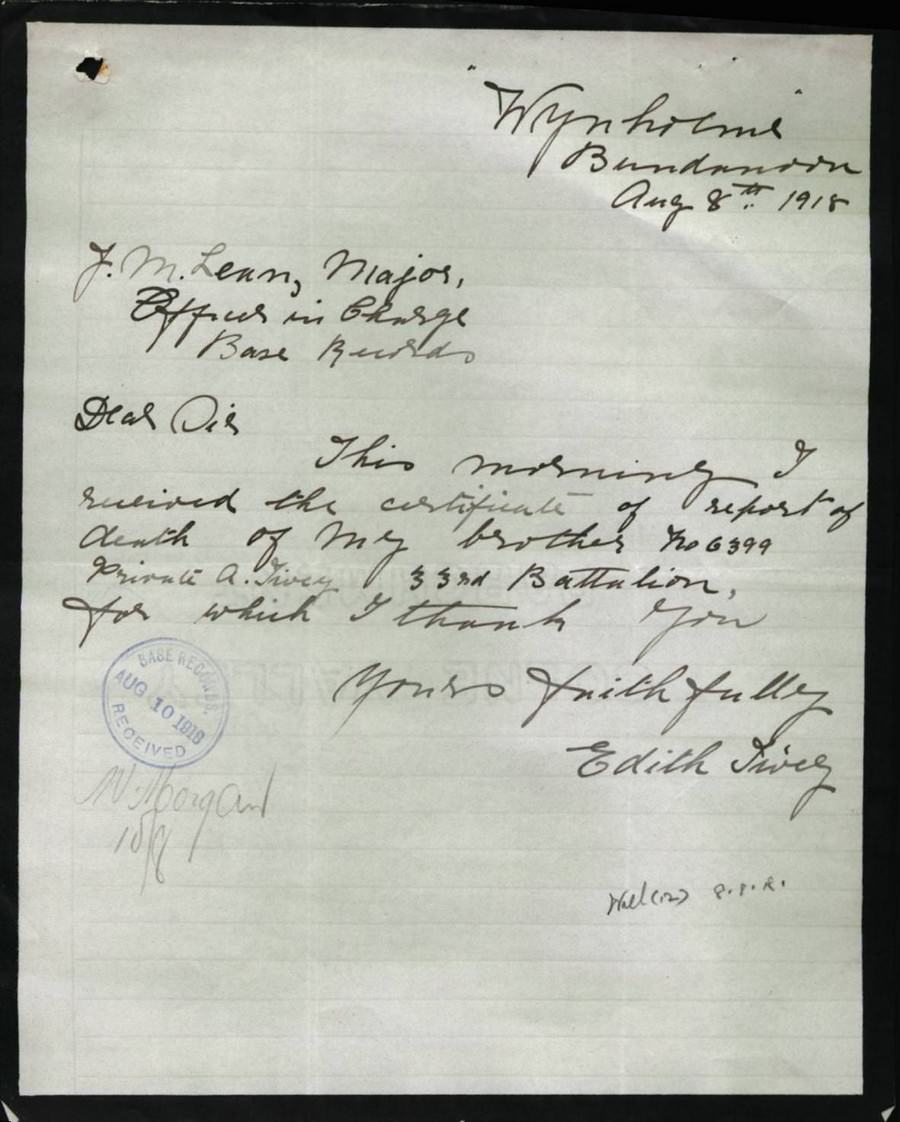 "Wynholme"
Bundanoon
Aug 8th. 1918
J. M. Lean, Major,
Officer in Charge
Base Records
Dear Sir
This morning I
received the certificate of report of
death of my brother No 6399
Private A. Tivey 33rd Battalion,
for which I thank you
Yours faithfully
Edith Tivey
BASE RECORDS.
AUG 10 1918
RECEIVED
W. Morgan
10/8